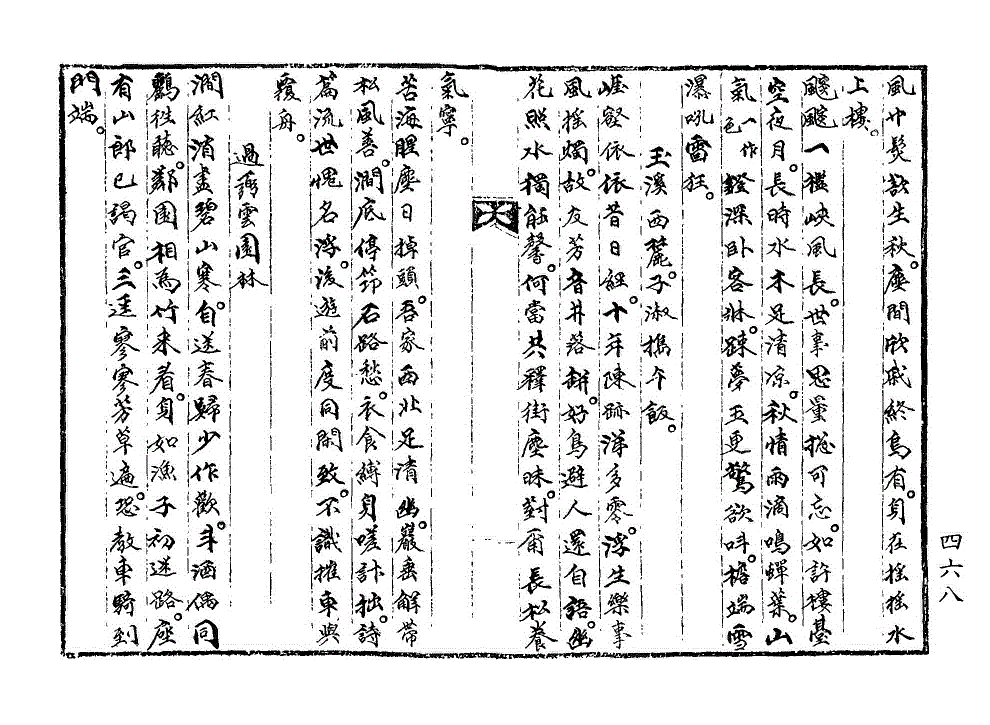 風中鬓欲生秋。塵間欣戚終烏有。身在搖搖水
上樓。
颼颼一檻峽風長。世事思量摠可忘。如許樓臺
空夜月。長時水木足清凉。秋情雨滴鳴蟬葉。山
氣一作色燈深臥客牀。踈夢五更驚欲呌。檐端雪
瀑吼雷狂。
玉溪西麓。子淑携午飯。
崕壑依依昔日經。十年陳跡涕多零。浮生樂事
風搖燭。故友芳音井落缾。好鳥避人還自語。幽
花照水獨能馨。何當共釋街塵昧。對爾長松養
氣寧。
苦海腥塵日掉頭。吾家西北足清幽。巖垂解帶
松風善。澗底停筇石路愁。衣食縛身嗟計拙。詩
篇流世愧名浮。後遊前度同閑致。不識摧車與
覆舟。
過雲園林
澗紅消盡碧山寒。自送春歸少作歡。斗酒偶同
鸝徃聽。鄰園相爲竹来看。身如漁子初迷路。座
有山郎已謁官。三逕寥寥芳草遍。恐教車騎到
門端。
四六八